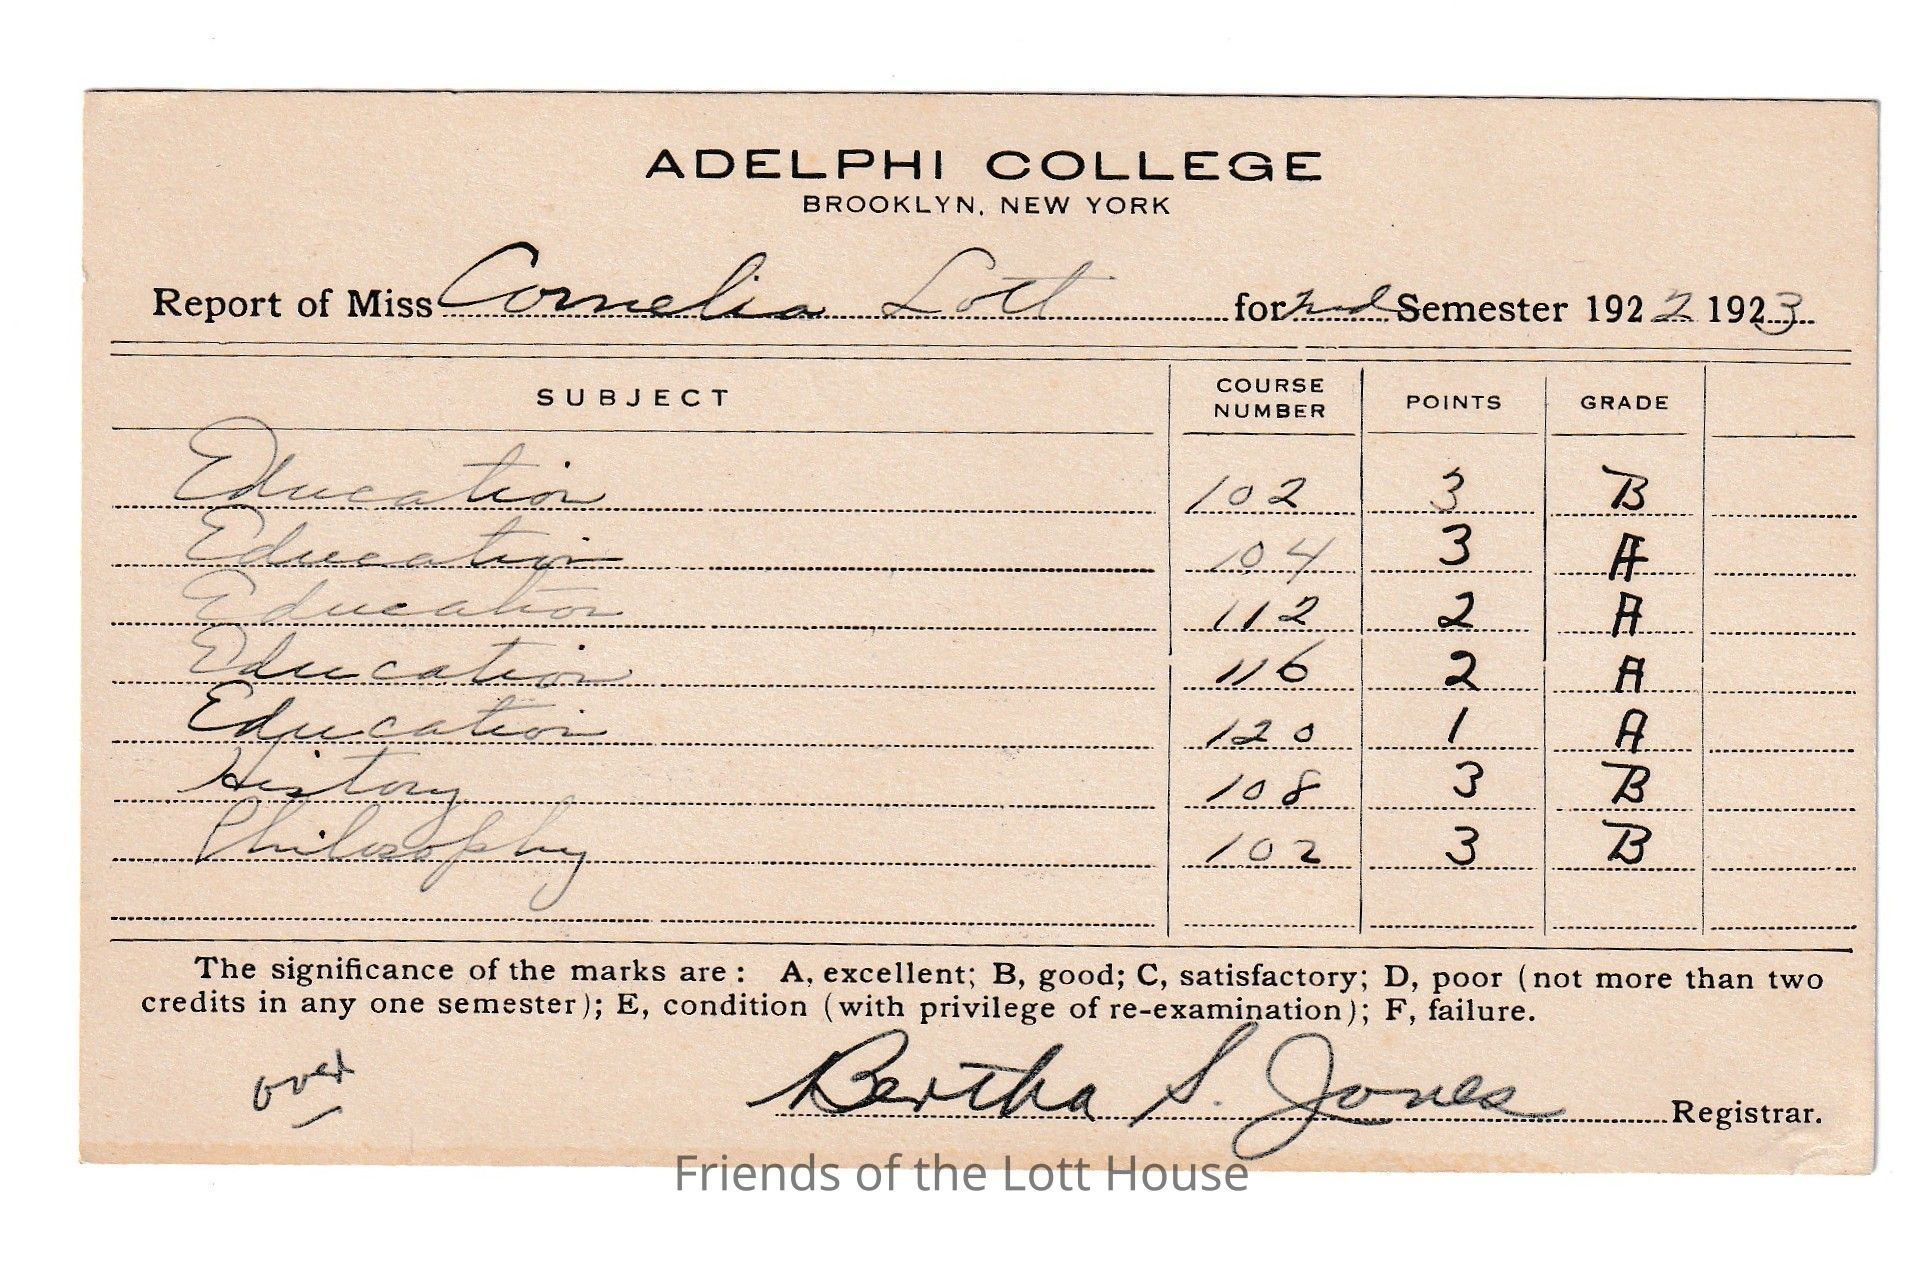 ADELPHI COLLEGE
BROOKLYN, NEW YORK
Report of Miss Cornelia Lott for 2nd Semester 1922 1923
SUBJECT COURSE NUMBER POINTS GRADE
Education 102 3 B
Education 104 3 A
Education 112 2 A
Education 116 2 A
Education 120 1 A
History 108 3 B
Philosophy 102 3 B
The significance of the marks are: A, excellent; B, good; C, satisfactory; D, poor (not more than two
credits in any one semester); E, condition (with privilege of re-examination); F, failure.
over
Bertha S. Jones Registrar.
Friends of the Lott House